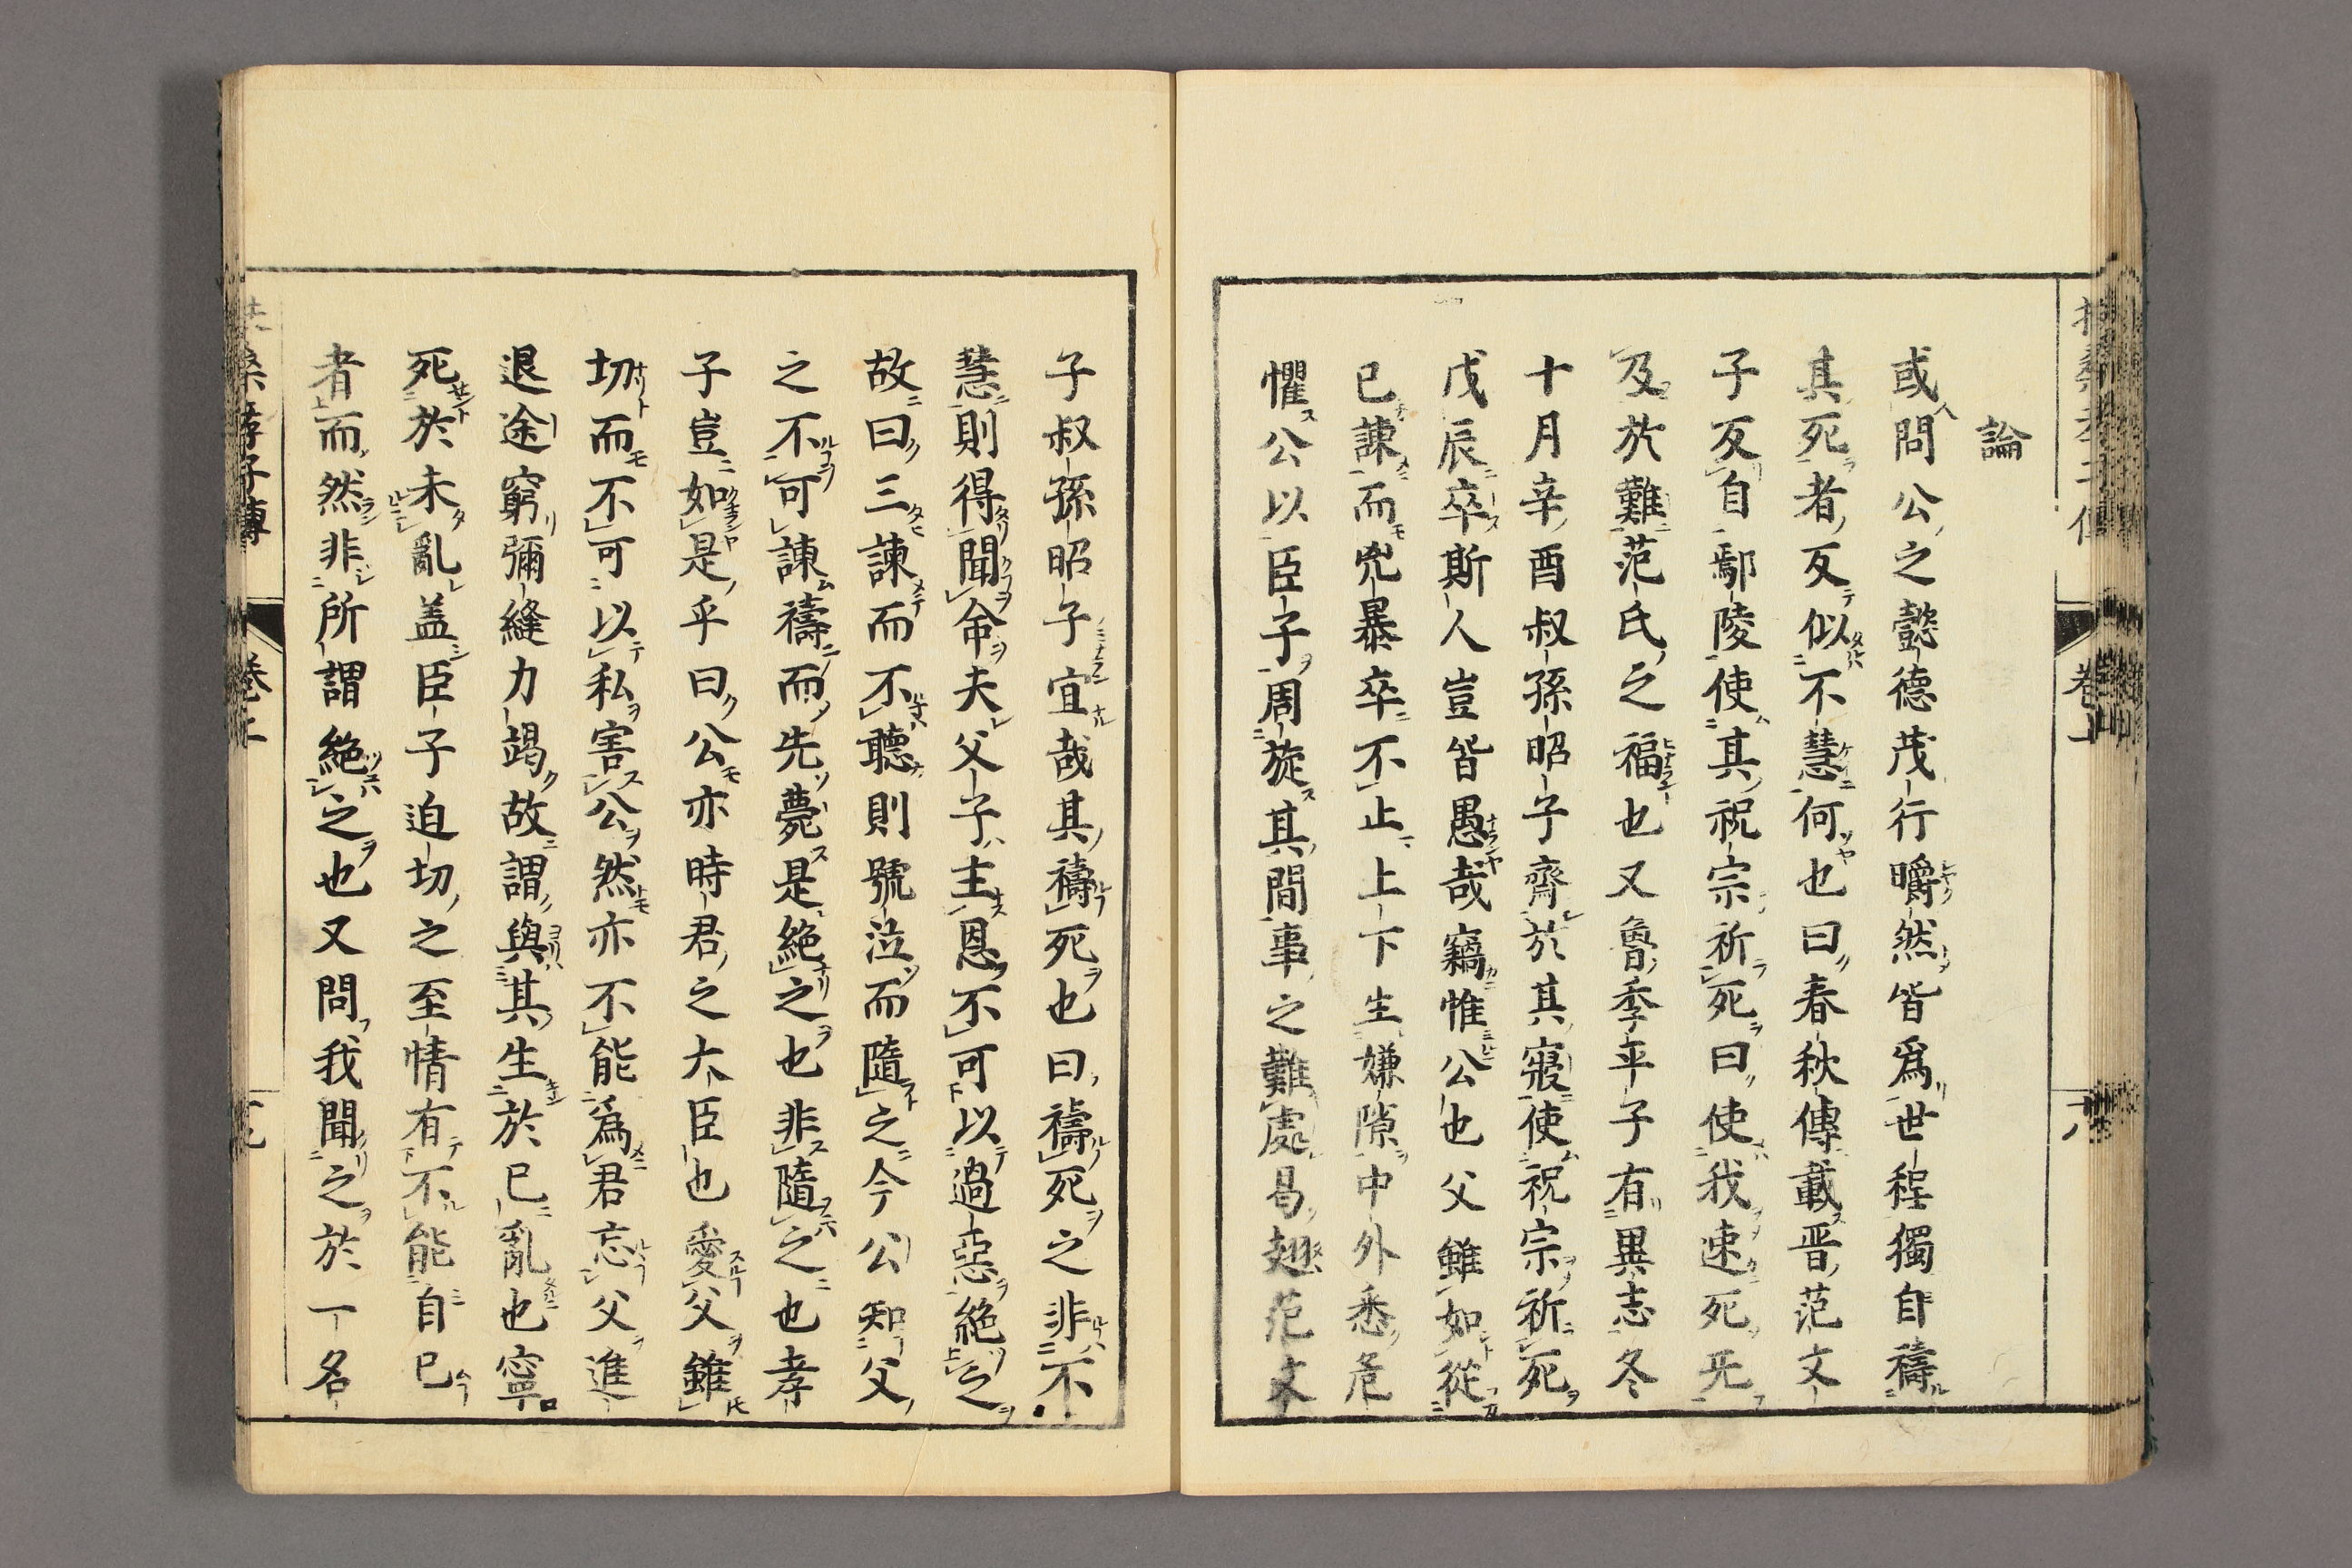 論
或問公之懿德茂行皭然皆爲世程獨自禱
其死者反似不慧何也曰春秋傳載晋范文
子反自鄢陵使其祝宗祈死曰使我速死无
及於難范氏之福也又魯季平子有異志冬
十月辛酉叔孫昭子齋於其寢使祝宗祈死
戊辰卒斯人豈皆愚哉竊惟公也父雖如從
已諫而兇暴卒不止上下生嫌隙中外悉危
懼公以臣子周旋其間事之難處曷趐范文
子叔孫昭子宜哉其禱死也曰禱死之非不
慧則得聞命夫父子主恩不可以過惡絶之
故曰三諫而不聽則號泣而隨之今公知父
之不可諫禱而先薨是絶之也非隨之也孝
子豈如是乎曰公亦時君之大臣也愛父雖
切而不可以私害公然亦不能爲君忘父進
退途窮彌縫力竭故謂與其生於已亂也寧
死於未亂盖臣子迫切之至情有不能自已
者而然非所謂絶之也又問我聞之於一名
扶桑孝子傳
卷上